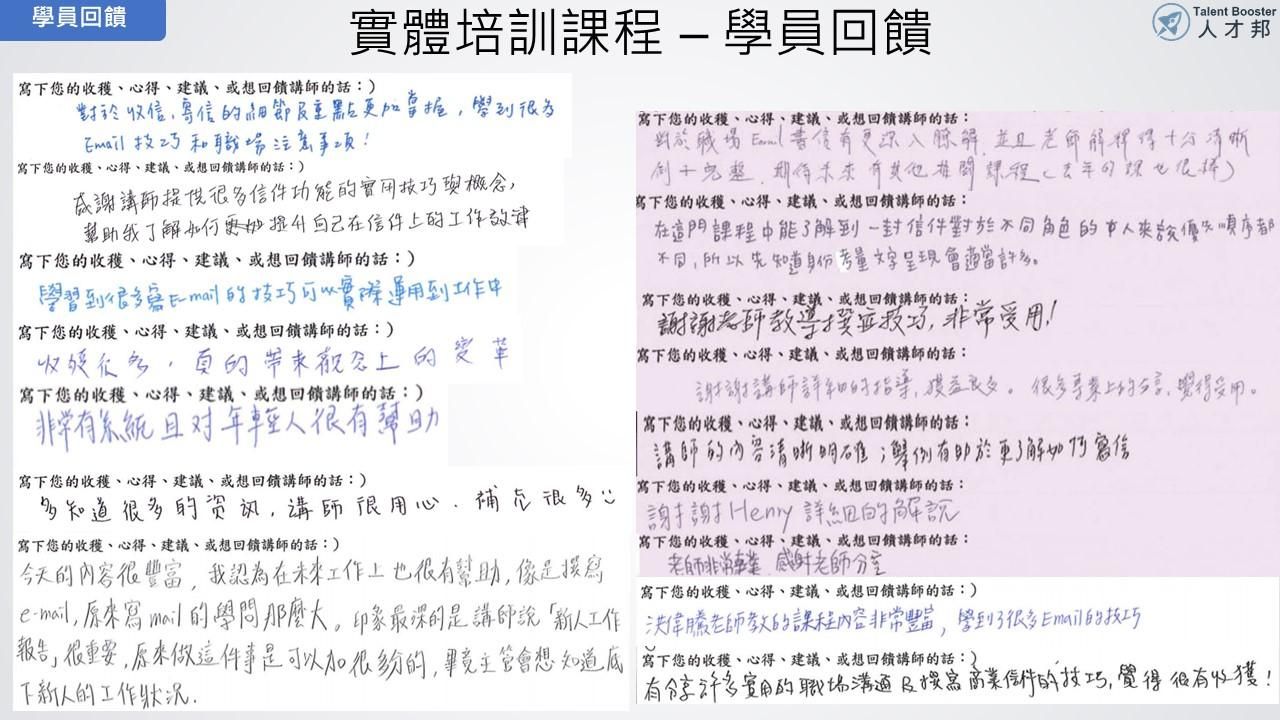 學員回饋
實體培訓課程 – 學員回饋
Talent Booster
人才邦
寫下您的收獲、心得、建議、或想回饋講師的話：)
對於收信,寄信的細節及重點更加掌握，學到很多
Email 技巧和職場注意事項!
寫下您的收獲、心得、建議、或想回饋講師的話：)
感謝講師提供很多信件功能的實用技巧與概念,
幫助我了解如何 提升自己在信件上的工作效律
寫下您的收獲、心得、建議、或想回饋講師的話：)
學習到很多寫E-mail的技巧可以實際運用到工作中
寫下您的收獲、心得、建議、或想回饋講師的話：)
收獲很多，真的帶來觀念上的變革
寫下您的收獲、心得、建議、或想回饋講師的話：)
非常有系統且对年輕人很有幫助
寫下您的收獲、心得、建議、或想回饋講師的話：)
多知道很多的資訊，講師很用心.補充很多
寫下您的收獲、心得、建議、或想回饋講師的話：)
今天的內容很豐富，我認為在未來工作上也很有幫助,像是撰寫
e-mail,原來寫mail的學問那麼大。印象最深的是講師說「新人工作
報告」很重要,原來做這件事是可以加很多分的,畢竟主管會想知道底
下新人的工作狀況.
寫下您的收獲、心得、建議、或想回饋講師的話：
對於職場Email書信有更深入瞭解,並且老師解釋得十分清晰
例子完整.期待未來有其他相關課程(去年的課也很棒)
寫下您的收獲、心得、建議、或想回饋講師的話：
在這門課程中能了解到一封信件對於不同角色的 人來說優先順序都
不同,所以先知道身份考量文字呈現會適當許多。
寫下您的收獲、心得、建議、或想回饋講師的話：
謝謝老師教導撰寫技巧,非常受用!
寫下您的收獲、心得、建議、或想回饋講師的話：
謝謝講師詳細的指導,獲益良多。很多專業上的分享,覺得受用。
寫下您的收獲、心得、建議、或想回饋講師的話：
講師的內容清晰明確；舉例有助於更了解如何寫信
寫下您的收獲、心得、建議、或想回饋講師的話：
謝謝Henry詳細的解說
寫下您的收獲、心得、建議、或想回饋講師的話：
老師非常專業.感謝老師分享
寫下您的收獲、心得、建議、或想回饋講師的話：)
洪偉騰老師教的課程內容非常豐富，學到了很多Email的技巧
寫下您的收獲、心得、建議、或想回饋講師的話：)
有分享許多實用的職場溝通及撰寫商業信件的技巧,覺得很有收獲!